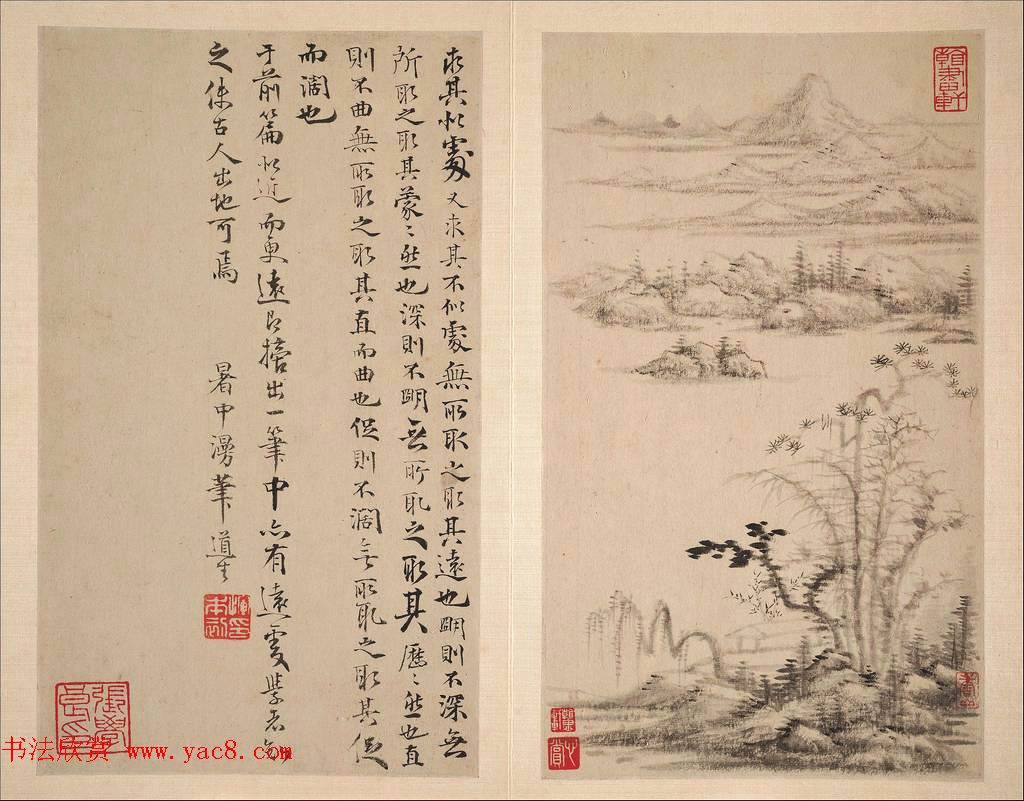 求其似處又求其不似處無所取之取其遠也明則不深無
所取之取其蒙〻然也深則不明無所取之取其歷〻然也直
則不曲無所取之取其直而曲也促則不濶無所取之取其促
而濶也
于前篇似近而更遠出一筆中亦有遠處學者知
之使古人出地可焉
暑中漫筆 道生
惲印本初
書法欣赏 www.yac8.com